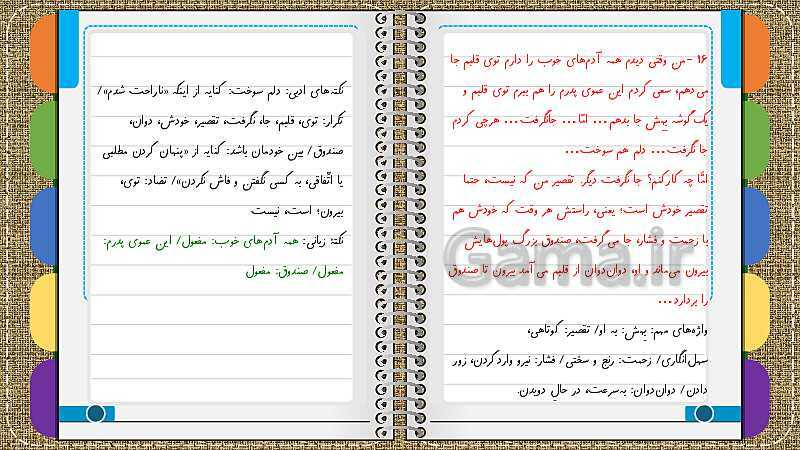 ۱۶ - من وقتی دیدم همه آدم‌های خوب را دارم توی قلبم جا
می‌دهم، سعی کردم این عموی پدرم را هم ببرم توی قلبم و
یک گوشه بِهِش جا بدهم... امّا... جا نگرفت... هرچی کردم
جا نگرفت... دلم هم سوخت...
امّا چه کار کنم؟ جا نگرفت دیگر. تقصیر من که نیست، حتما
تقصیر خودش است؛ یعنی، راستش هر وقت که خودش هم
با زحمت و فشار، جا می‌گرفت، صندوق بزرگ پول‌هایش
بیرون می‌ماند و او، دوان‌دوان از قلبم می‌آمد بیرون تا صندوق
را بردارد...
واژه‌های مهم: بِهِش: به او/ تقصیر: کوتاهی،
سهل‌انگاری/ زحمت: رنج و سختی/ فشار: نیرو وارد کردن، زور
دادن/ دوان‌دوان: به‌سرعت، در حالِ دویدن.
نکته‌های ادبی: دلم سوخت: کنایه از اینکه «ناراحت شدم»/
تکرار: توی، قلبم، جا، نگرفت، تقصیر، خودش، دوان،
صندوق/ بین خودمان باشد: کنایه از «پنهان کردن مطلبی
یا اتّفاقی، به کسی نگفتن و فاش نکردن»/ تضاد: توی،
بیرون؛ است، نیست
نکتهٔ زبانی: همه آدم‌های خوب: مفعول/ این عموی پدرم:
مفعول/ صندوق: مفعول
Gama.ir